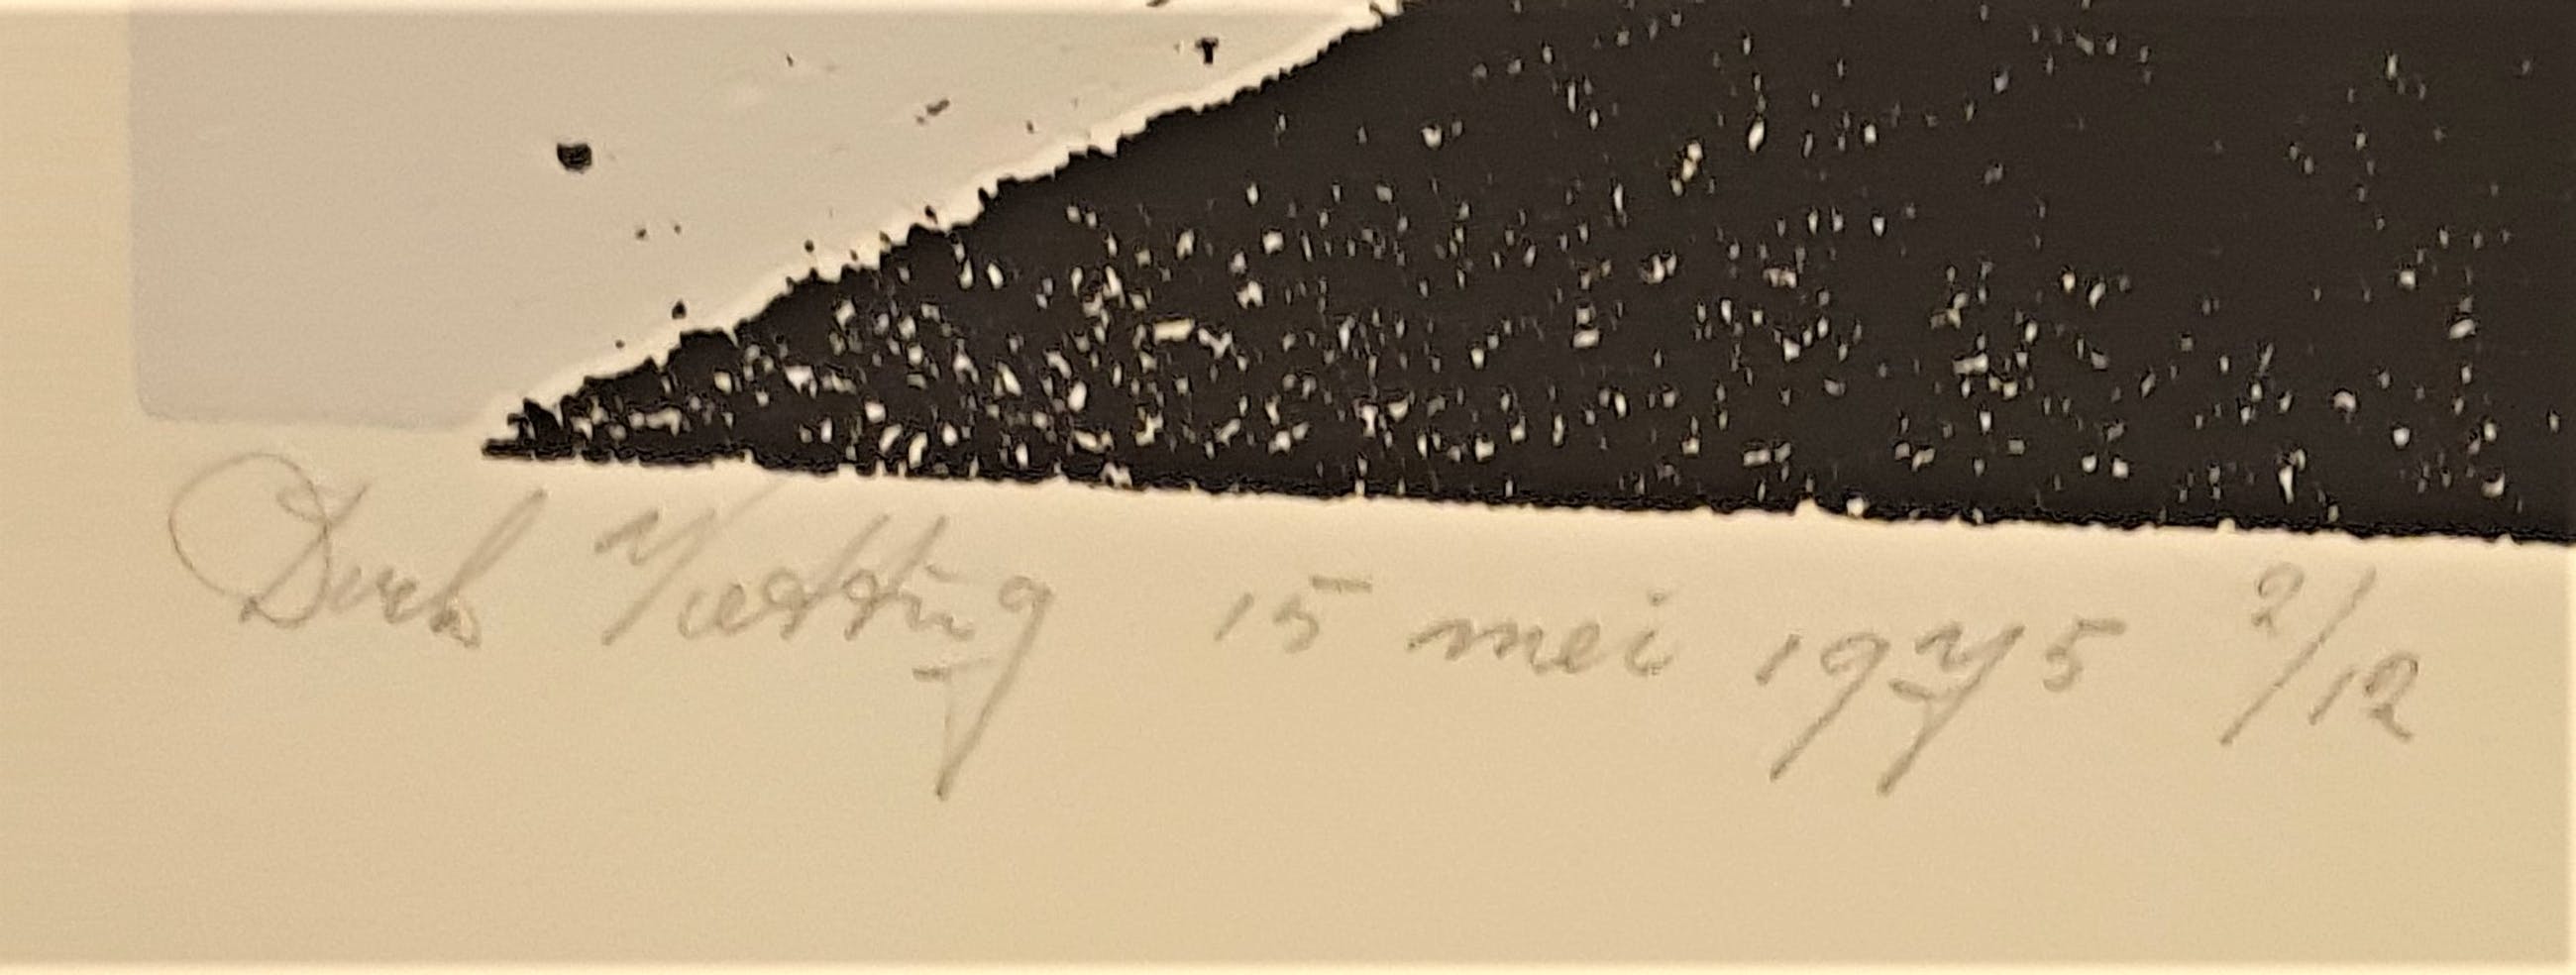 Dirk 15 mei 1975 2/12